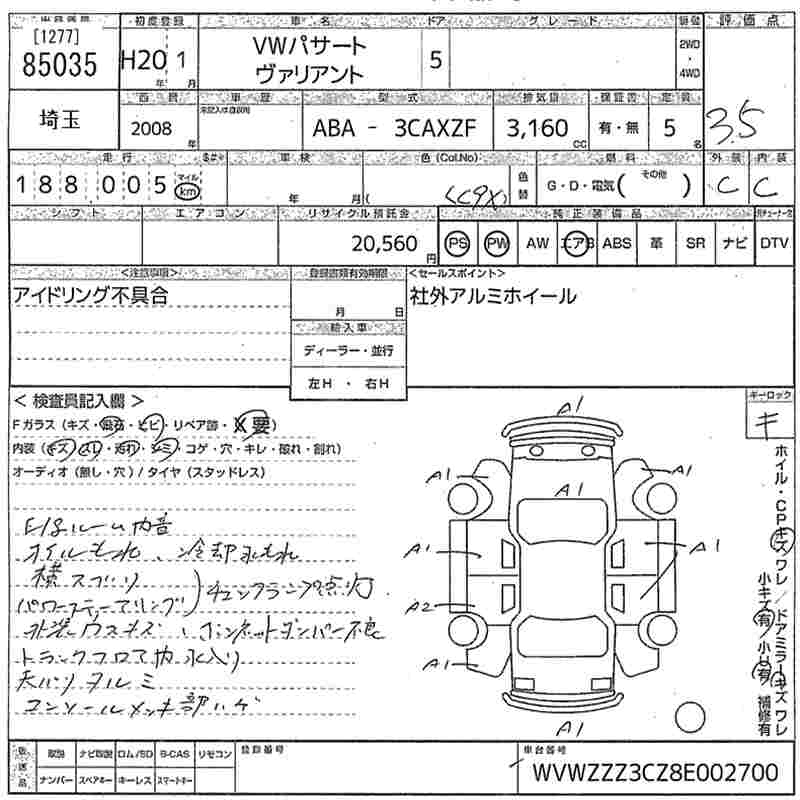 [1277]
85035
初度登録
H20 1
年 月
車名
VWパサート
ヴァリアント
ドア
5
グレード
2WD
・
4WD
評価点
3.5
埼玉
西暦
2008
年
車歴
型式
ABA - 3CAXZF
排気量
3,160
CC
保証書
有・無
定員
5
名
走行
188005
マイル
km
車検
年 月
色(Col.No)
(C9X)
色替
燃料
G・D・電気( その他 )
外装
C
内装
C
シフト
エアコン
リサイクル預託金
20,560
円
純正装備品
PS PW AW エアB ABS 革 SR ナビ DTV
<注意事項>
アイドリング不具合
登録書類有効期限
月 日
輸入車
ディーラー・並行
左H ・ 右H
<セールスポイント>
社外アルミホイール
<検査員記入欄>
Fガラス(キズ・飛石・ヒビ・リペア跡・X要)
内装(キズ・スレ・汚れ・シミ・コゲ・穴・キレ・破れ・割れ)
オーディオ(無し・穴)/タイヤ(スタッドレス)
E/gルーム内音
オイルもれ、冷却水もれ
横スベリ
パワーステアリング
チェックランプ点灯
外装ウスキズ、ボンネットダンパー不良
トランクフロア内水入り
天バリタルミ
コンソールメッキ部ハゲ
A1
A1 A1
A1
A1 A1
A2
A1
A1
キーロック
キ
ホイル・CPキズワレ/ドアミラーキズワレ
小キズ有/小U有/補修有
取説 ナビ取説 ロム/SD B-CAS リモコン
ナンバー スペアキー キーレス スマートキー
登録番号
車台番号
WVWZZZ3CZ8E002700